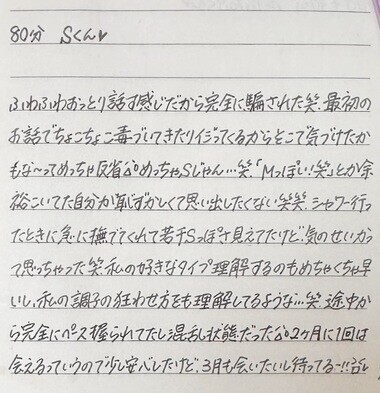 80分 Sくん♥
ふわふわおっとり話す感じだから完全に騙された笑、最初の
お話でちょこちょこ毒づいてきたりイジってくるからそこで気づけたか
もな〜ってめっちゃ反省 めっちゃSじゃん…笑「Mっぽい!笑」とか余
裕こいてた自分が恥ずかしくて思い出したくない笑笑 シャワー行っ
たときに急に撫でてくれて若干Sっぽさ見えてたけど、気のせいかっ
て思っちゃった笑 私の好きなタイプ理解するのもめちゃくちゃ早
いし、私の調子の狂わせ方をも理解してるような…笑 途中か
ら完全にペース握られてたし混乱状態だった 2ヶ月に1回は
会えるっていうので少し安心したけど、3月も会いたいし待ってる〜!!